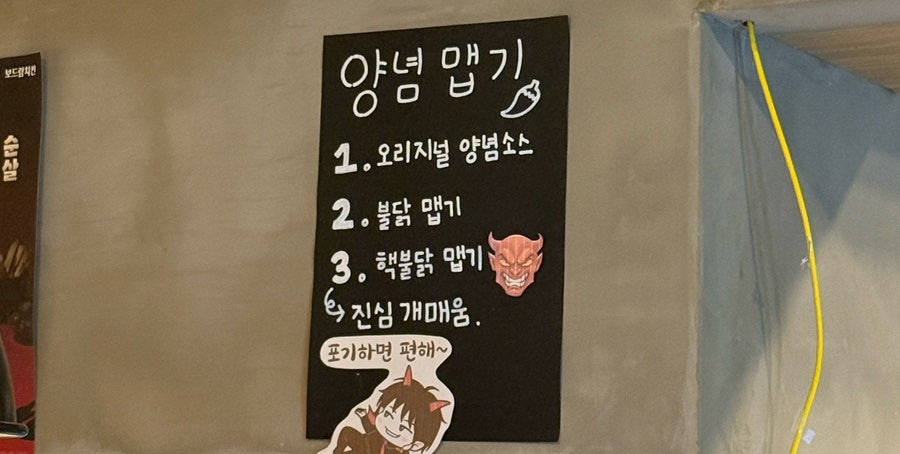 보드람치킨
순살
양념 맵기
1. 오리지널 양념소스
2. 불닭 맵기
3. 핵불닭 맵기
→ 진심 개매움.
포기하면 편해~